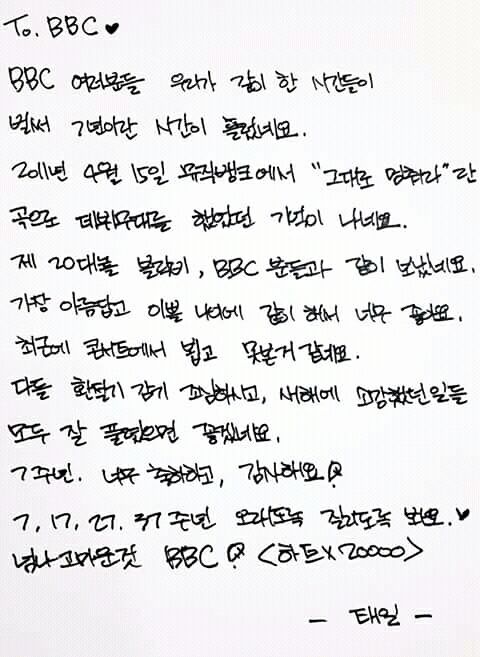 To. BBC ♥
BBC 여러분들 우리가 같이 한 시간들이
벌써 7년이란 시간이 흘렀네요.
2011년 4월 15일 뮤직뱅크에서 "그대로 멈춰라"란
곡으로 데뷔무대를 했었던 기억이 나네요.
제 20대를 블락비, BBC 분들과 같이 보냈네요.
가장 아름답고 이쁠 나이에 같이 해서 너무 좋아요.
최근에 콘서트에서 뵙고 못본거 같네요.
다들 환절기 감기 조심하시고, 새해에 소망했던일들
모두 잘 풀렸으면 좋겠네요.
7주년. 너무 축하하고, 감사해요
7, 17, 27. 37주년 오래도록 질리도록 봐요. ♥
넘나 고마운것 BBC <하트x20000>
- 태일 -